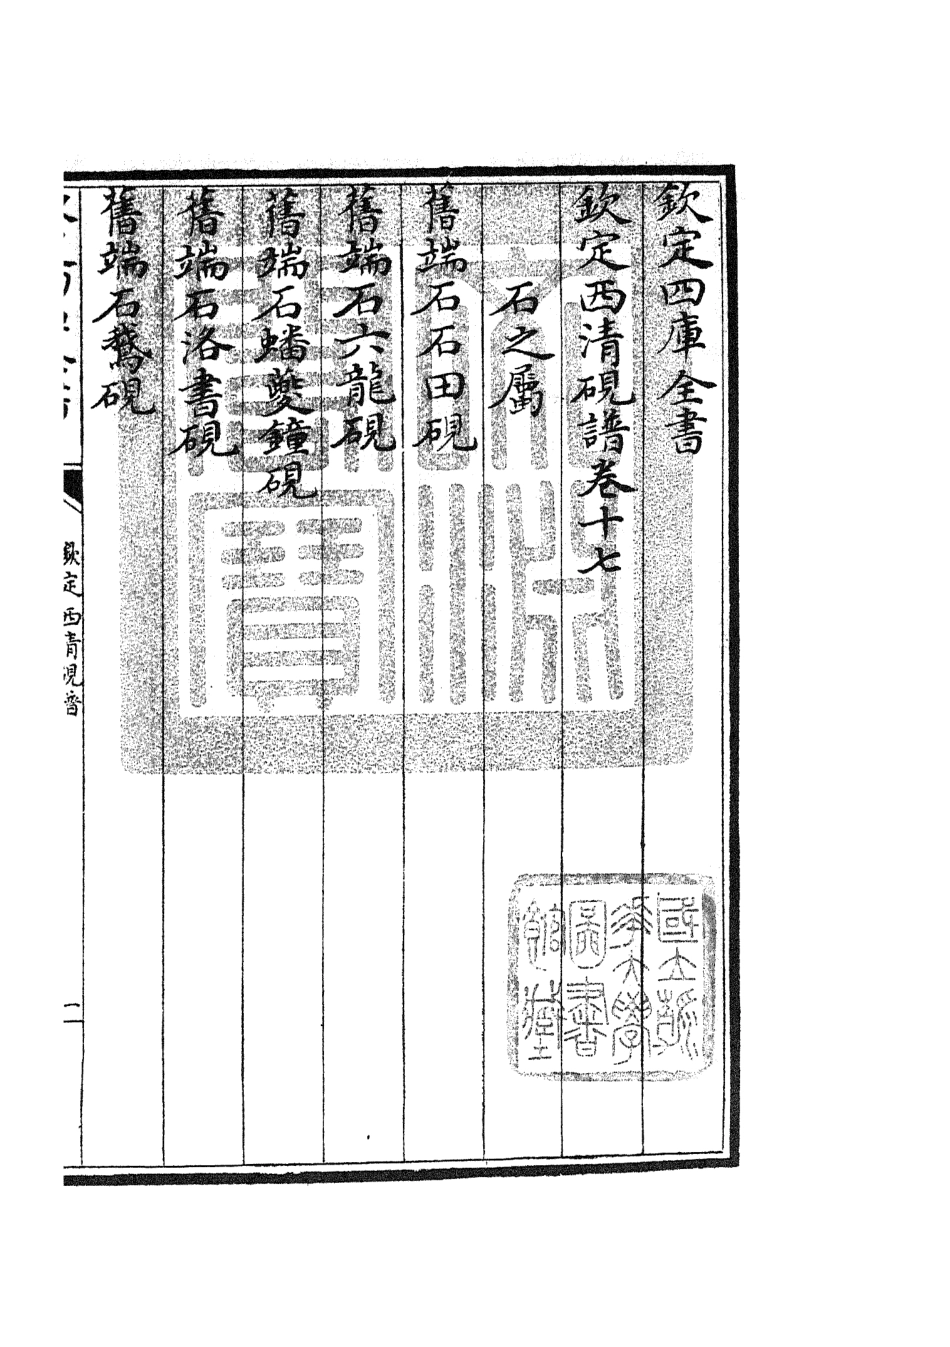 欽定四庫全書
欽定西清硯譜卷十七
石之屬
舊端石石田硯
舊端石六龍硯
舊端石蟠夔鐘硯
舊端石洛書硯
舊端石鵞硯
欽定四庫全書
欽定西清硯譜
一
文淵閣寶
國立
華大學
圖書
館藏